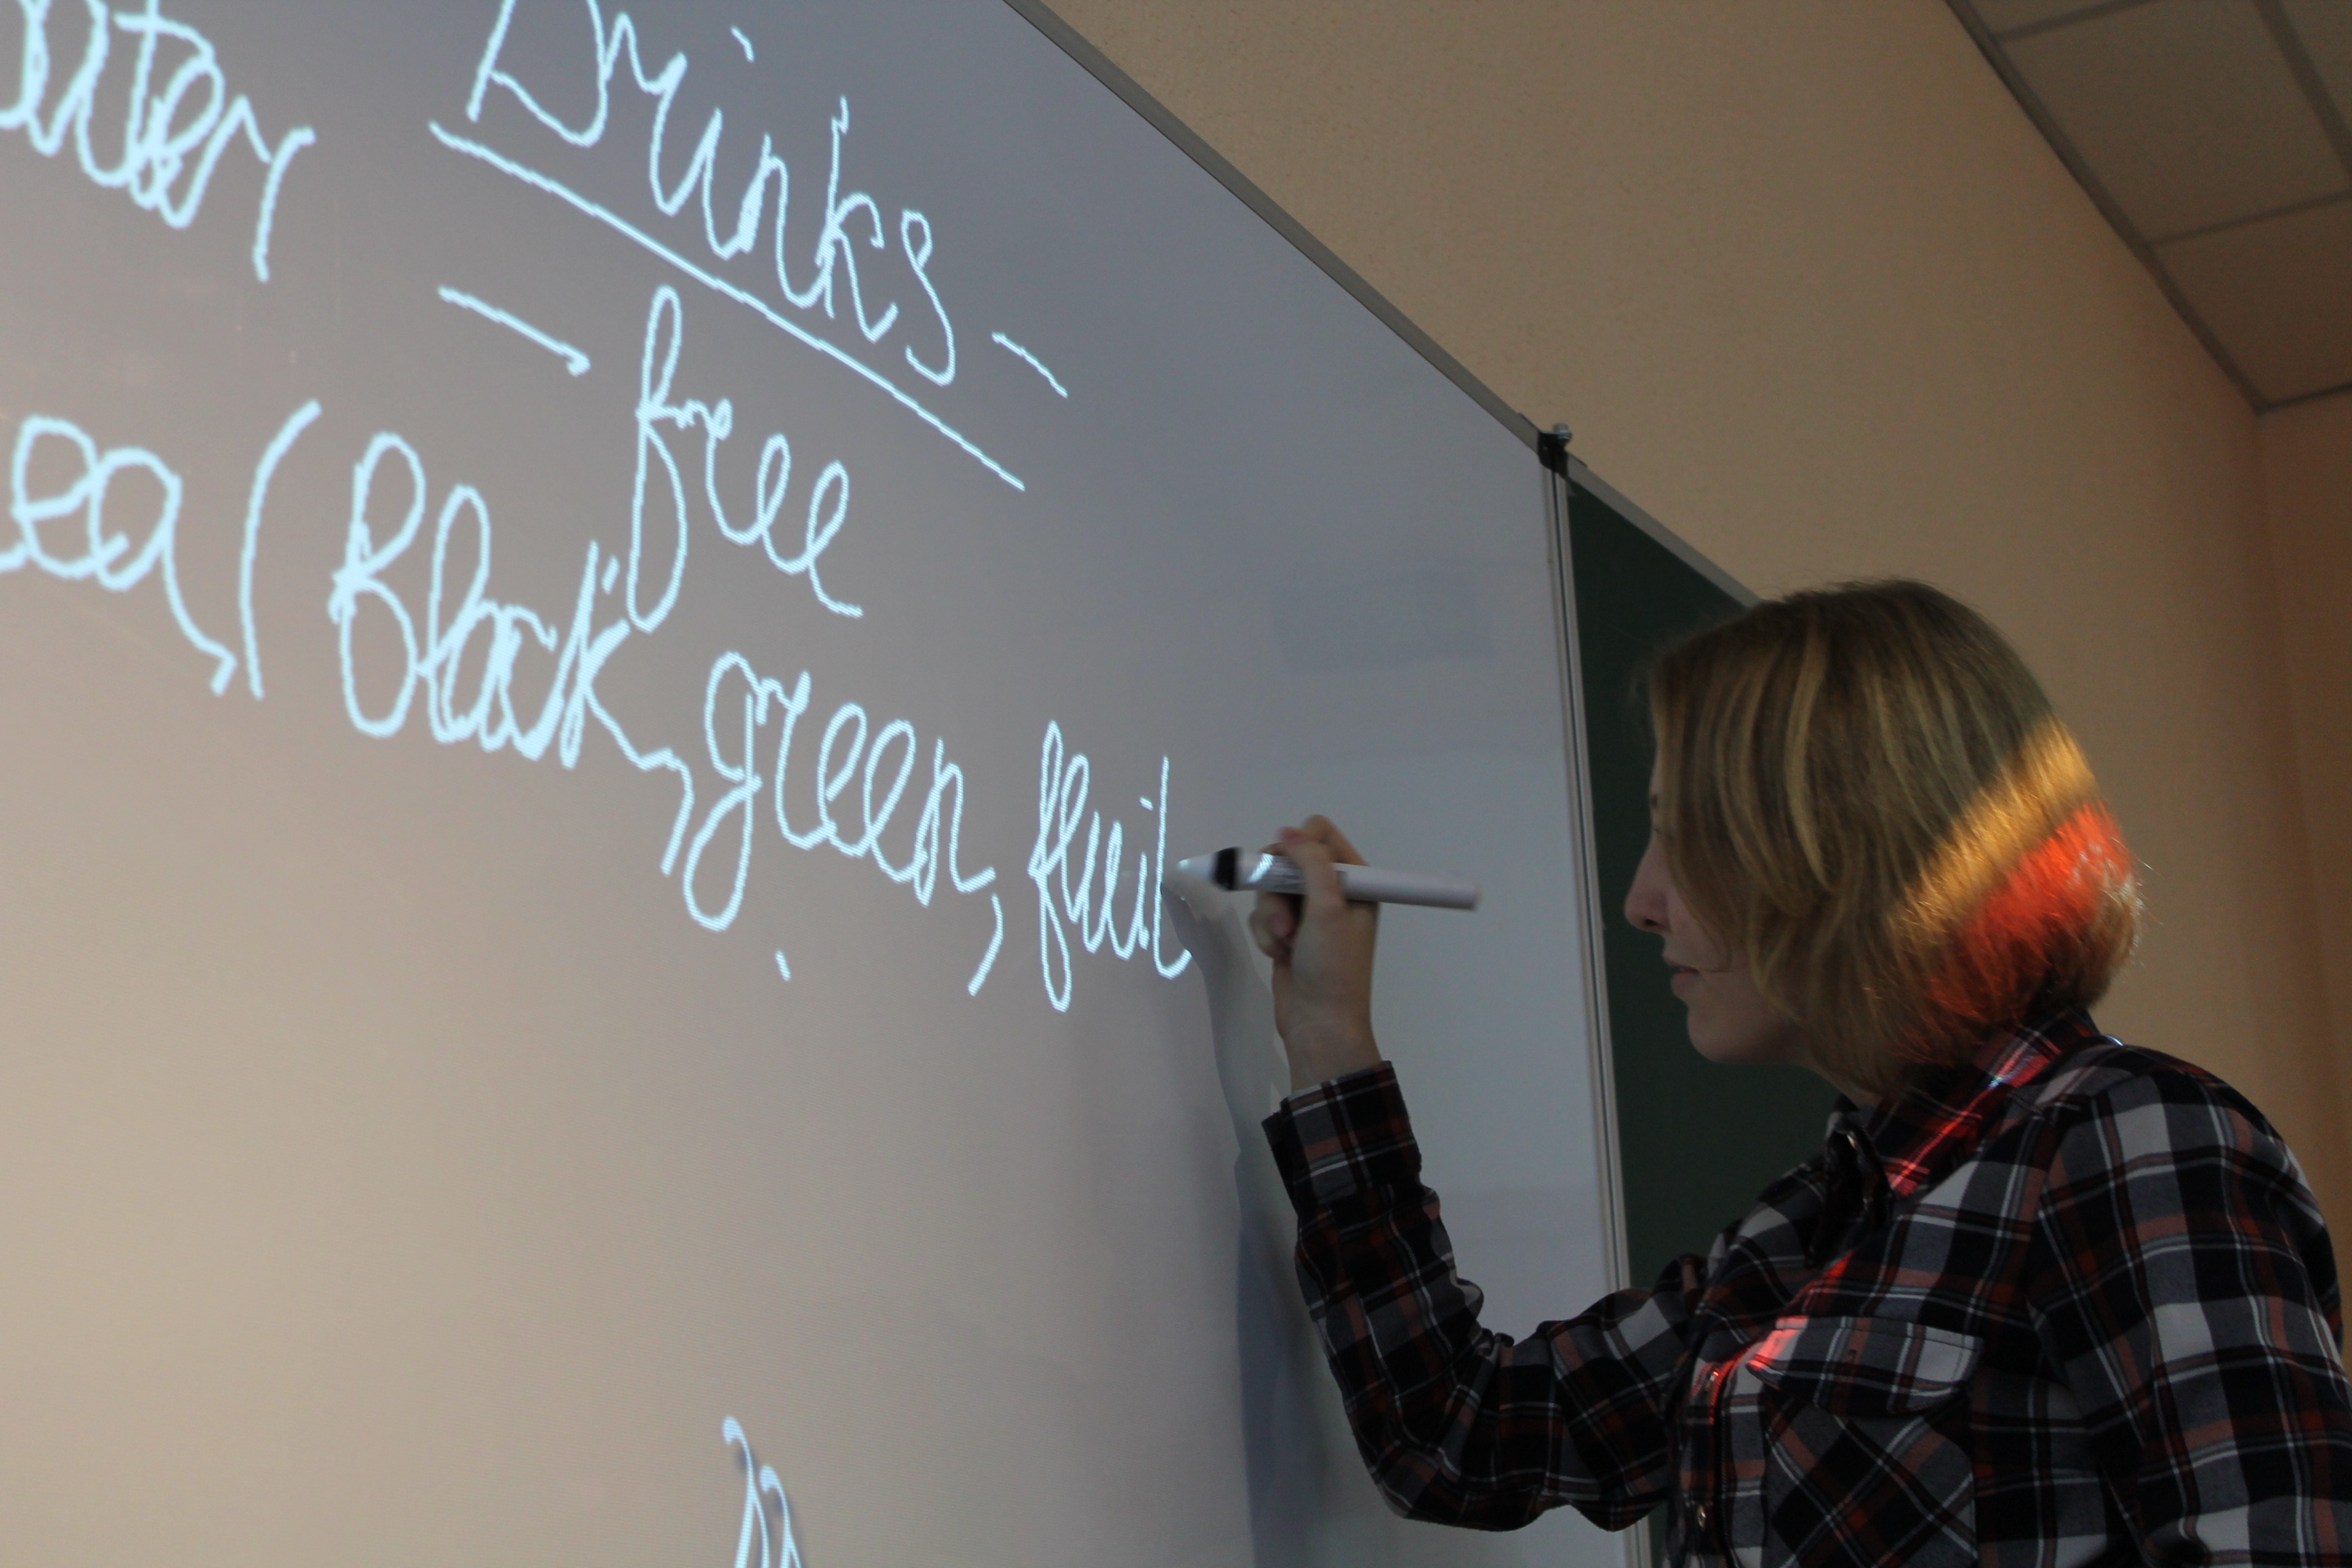 Drinks -
ater → free
ea, (Black, green, fruit